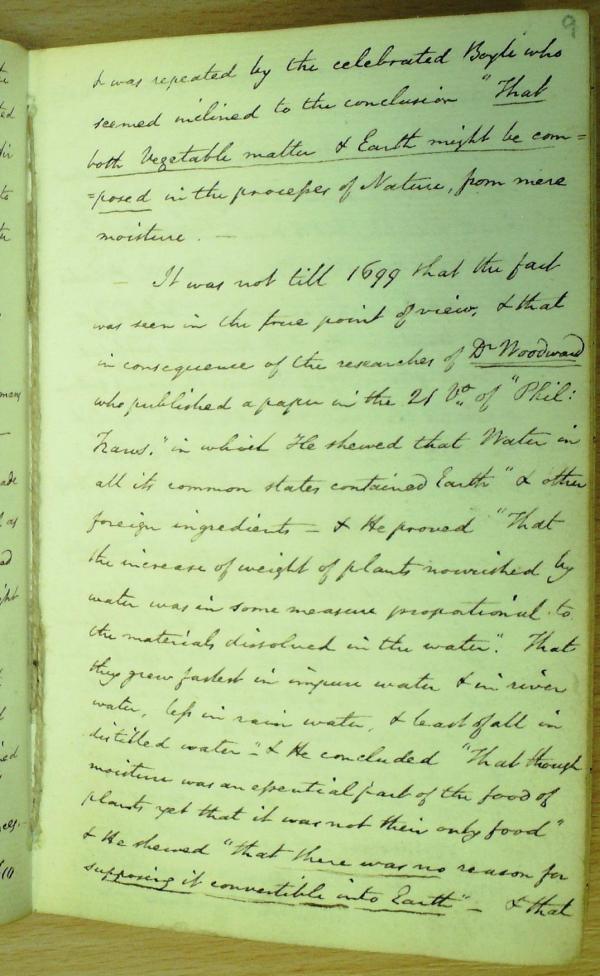 9
& was repeated by the celebrated Boyle who
seemed inclined to the conclusion "That
both Vegetable matter & Earth might be com=
=posed in the processes of Nature, from mere
moisture. —
— It was not till 1699 that the fact
was seen in the true point of view, & that
in consequence of the researches of Dr Woodward
who published a paper in the 21 Vol. of "Phil:
Trans." in which He shewed that Water in
all its common states contained Earth "& other
foreign ingredients — & He proved "That
the increase of weight of plants nourished by
water was in some measure proportional to
the materials dissolved in the water". That
they grew fastest in impure water & in river
water, less in rain water, & least of all in
distilled water" & He concluded "That though
moisture was an essential part of the food of
plants yet that it was not their only food"
& He shewed "that there was no reason for
supposing it convertible into Earth" — & that
many